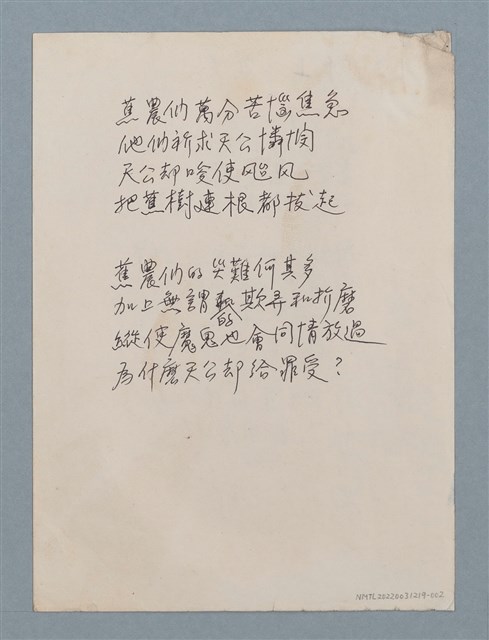 蕉農們萬分苦惱焦急
他們祈求天公憐憫
天公却唆使颱风
把蕉樹連根都拔起
蕉農們的災難何其多
加上無謂的欺弄和折磨
縱使魔鬼也會同情放過
為什麼天公却給罪受？
NMTL20220031219-002